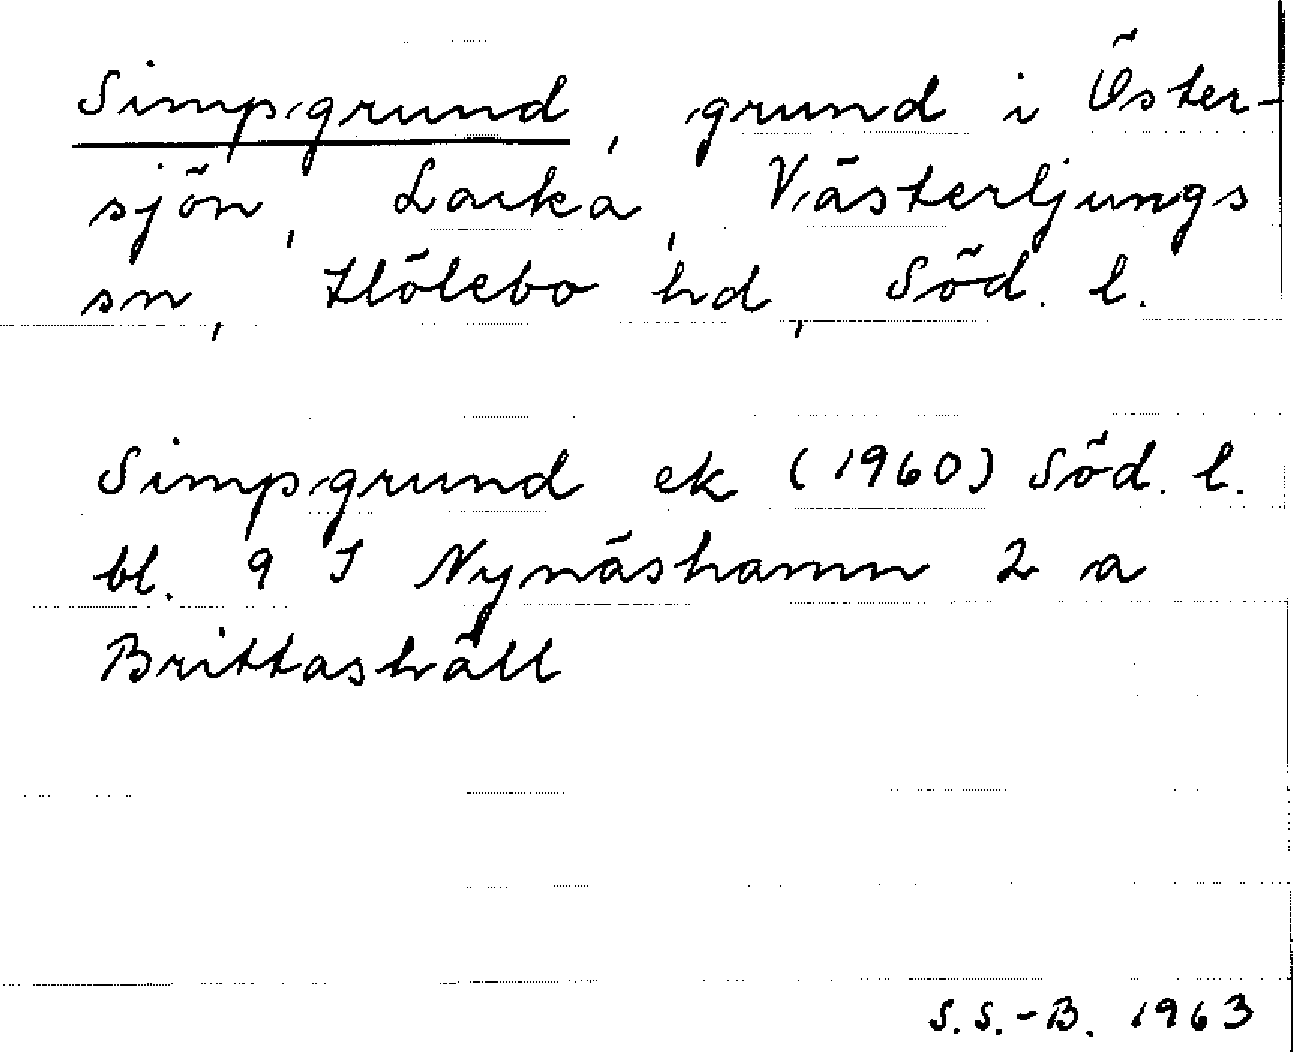 Simpgrund, grund i Öster-
sjön, Lacka, Västerljungs
sn, Hölebo hd, Söd. l.
Simpgrund ek (1960) Söd. l.
bl. 9 I Nynäshamn 2 a
Brittashäll
S.S.-B. 1963